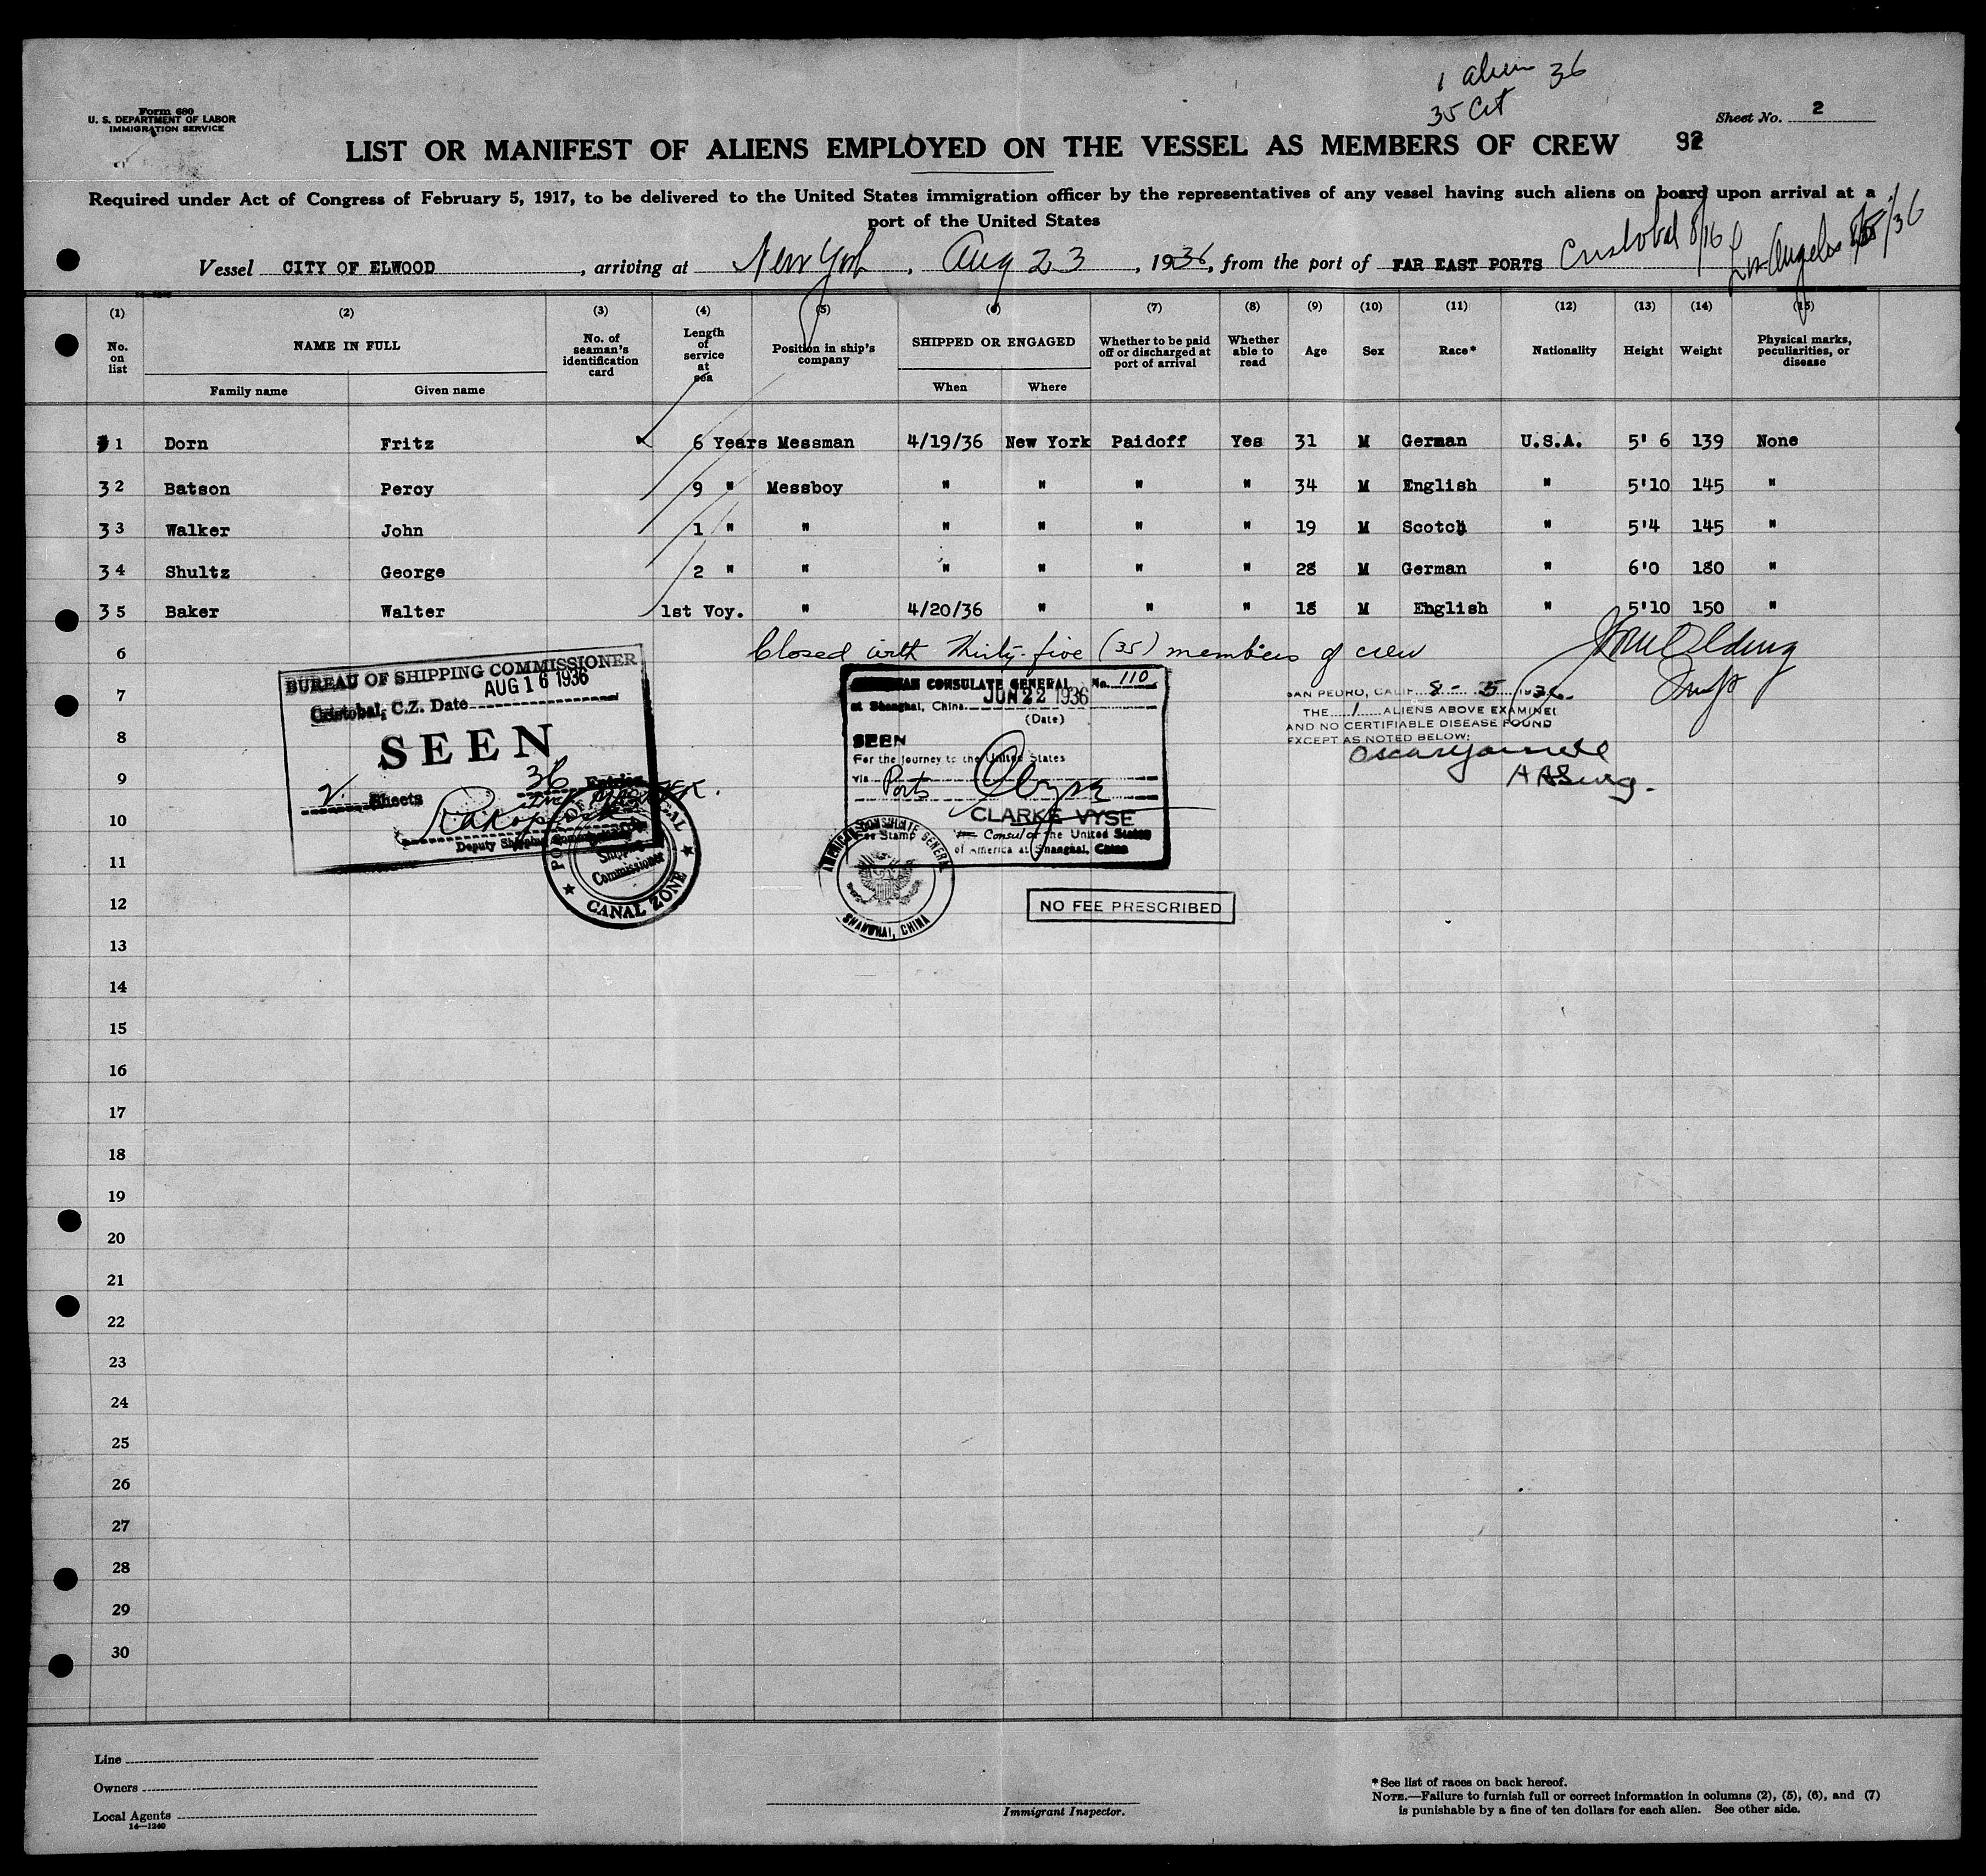 1 alien 36
35 Cit
Form 680
U. S. DEPARTMENT OF LABOR
IMMIGRATION SERVICE
Sheet No. 2
LIST OR MANIFEST OF ALIENS EMPLOYED ON THE VESSEL AS MEMBERS OF CREW 92
Required under Act of Congress of February 5, 1917, to be delivered to the United States immigration officer by the representatives of any vessel having such aliens on board upon arrival at a
port of the United States
Vessel CITY OF ELWOOD, arriving at New York, Aug 23, 1936, from the port of FAR EAST PORTS Cristobal 8/16 Los Angeles 8/5/36
(1) (2) (3) (4) (5) (6) (7) (8) (9) (10) (11) (12) (13) (14) (15)
No. on list NAME IN FULL No. of seaman's identification card Length of service at sea Position in ship's company SHIPPED OR ENGAGED Whether to be paid off or discharged at port of arrival Whether able to read Age Sex Race* Nationality Height Weight Physical marks, peculiarities, or disease
Family name Given name When Where
1 Dorn Fritz 6 Years Messman 4/19/36 New York Paidoff Yes 31 M German U.S.A. 5' 6 139 None
32 Batson Percy 9 " Messboy " " " " 34 M English " 5'10 145 "
33 Walker John 1 " " " " " " 19 M Scotch " 5'4 145 "
34 Shultz George 2 " " " " " " 28 M German " 6'0 180 "
35 Baker Walter 1st Voy. " 4/20/36 " " " 18 M English " 5'10 150 "
6 Closed with Thirty-five (35) members of crew
BUREAU OF SHIPPING COMMISSIONER
AUG 16 1936
Cristobal, C.Z. Date
SEEN
2 Sheets 36 Entries
Deputy Shipping Commissioner
Shipping Commissioner
CANAL ZONE
CONSULATE GENERAL No. 110
at Shanghai, China. JUN 22 1936
(Date)
SEEN
For the journey to the United States
via Ports
CLARKE VYSE
Consul of the United States
of America at Shanghai, China
Fee Stamp
AMERICAN CONSULATE GENERAL
SHANGHAI, CHINA
NO FEE PRESCRIBED
SAN PEDRO, CALIF. 8-5 1936.
THE 1 ALIENS ABOVE EXAMINED
AND NO CERTIFIABLE DISEASE FOUND
EXCEPT AS NOTED BELOW:
7
8
9
10
11
12
13
14
15
16
17
18
19
20
21
22
23
24
25
26
27
28
29
30
Line
Owners
Local Agents
14—1240
Immigrant Inspector.
*See list of races on back hereof.
NOTE.—Failure to furnish full or correct information in columns (2), (5), (6), and (7)
is punishable by a fine of ten dollars for each alien. See other side.